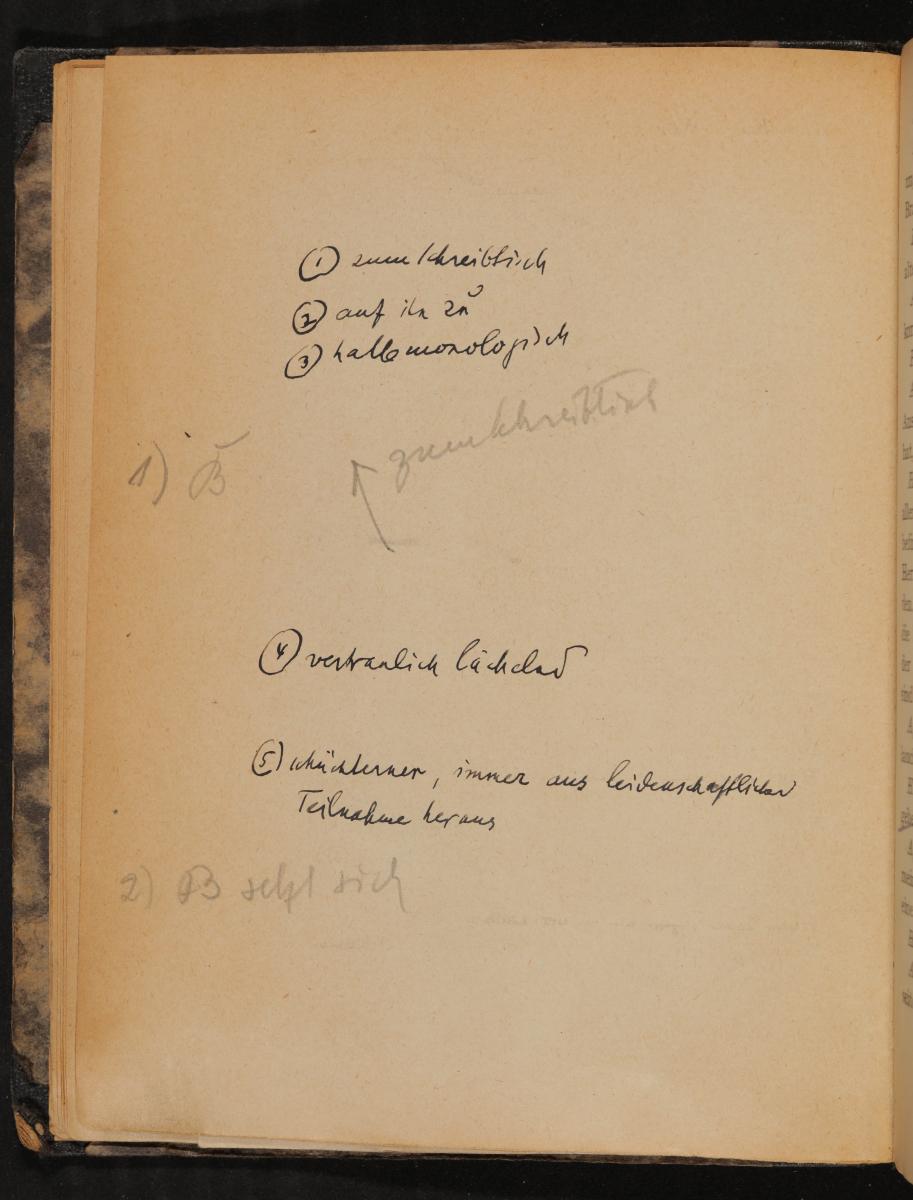 ① zum Schreibtisch
② auf ihn zu
③ halb monologisch
zum Schreibtisch
1) B
④ vertraulich lächelnd
⑤ schüchterner, immer aus leidenschaftlicher
Teilnahme heraus
2) B setzt sich